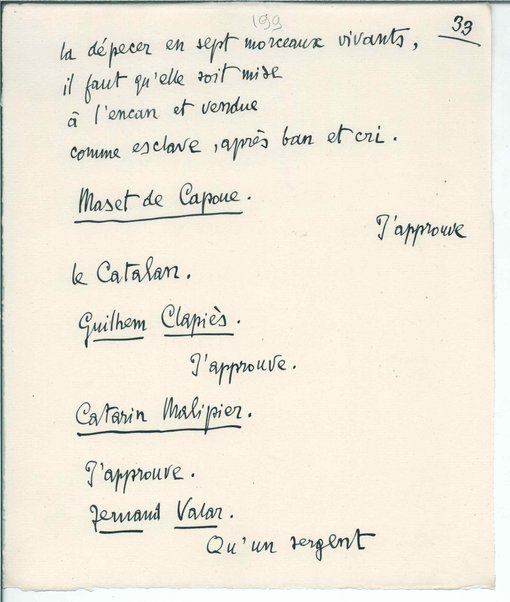 199
33
la dépecer en sept morceaux vivants,
il faut qu'elle soit mise
à l'encan et vendue
comme esclave, après ban et cri.
Maset de Capoue.
J'approuve
le Catalan.
Guilhem Clapiès.
J'approuve.
Catarin Malipier.
J'approuve.
Fernand Valar.
Qu'un sergent